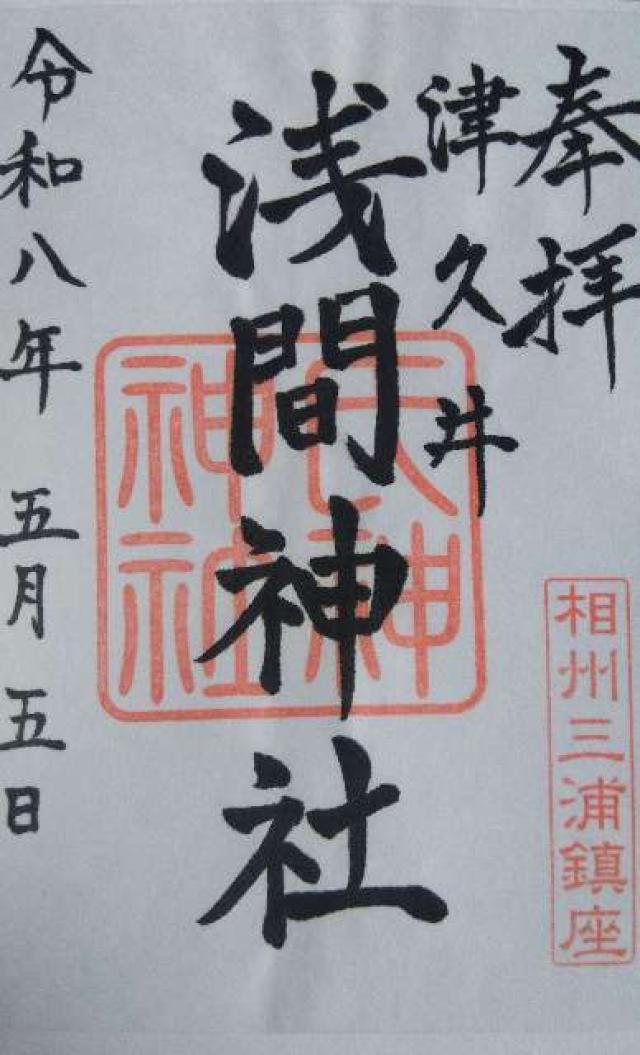 奉拝
相州三浦鎮座
津久井
浅間神社
天神
神社
令和八年 五月 五日